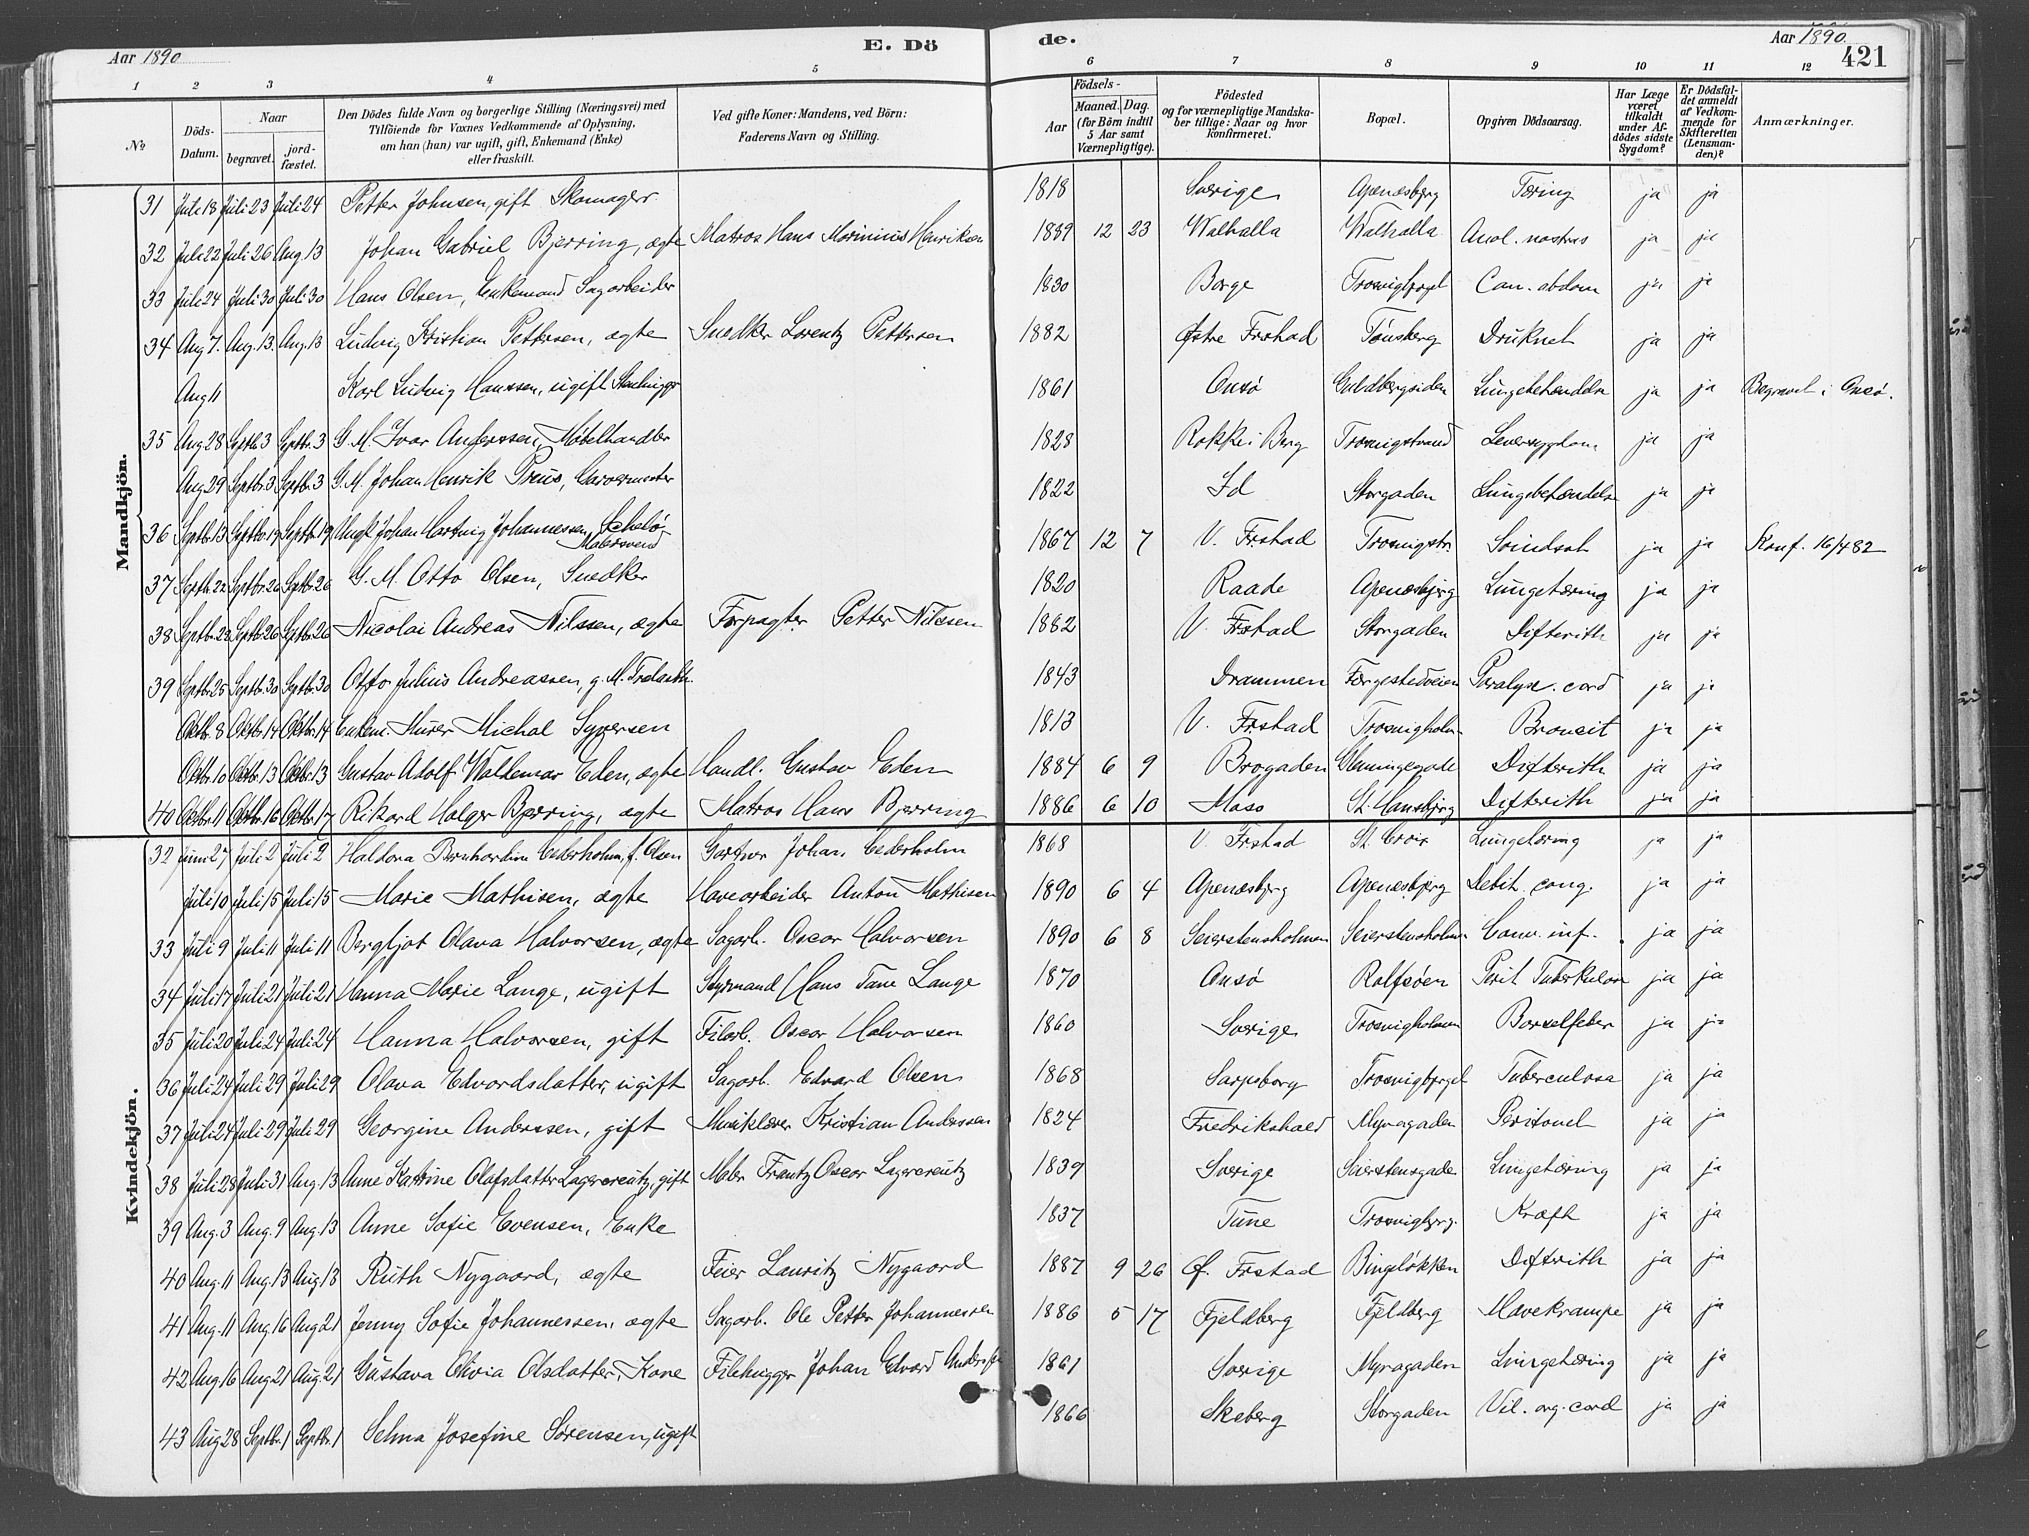 Aar 1890
E. Dö
de.
Aar 1890.
421
1 2 3 4 5 6 7 8 9 10 11 12
No
Döds-Datum.
Naar
begravet.
jord-fæstet.
Den Dödes fulde Navn og borgerlige Stilling (Næringsvei) med
Tilföiende for Voxnes Vedkommende af Oplysning,
om han (hun) var ugift, gift, Enkemand (Enke)
eller fraskilt.
Ved gifte Koner: Mandens, ved Börn:
Faderens Navn og Stilling.
Födsels-
Aar
Maaned. Dag.
(for Börn indtil
5 Aar samt
Værnepligtige).
Födested
og for værnepligtige Mandska-
ber tillige: Naar og hvor
konfirmeret.
Bopæl.
Opgiven Dödsaarsag.
Har Læge
været
tilkaldt
under Af-
dödes sidste
Sygdom?
Er Dödsfal-
det anmeldt
af Vedkom-
mende for
Skifteretten
(Lensman-
den)?
Anmærkninger.
Mandkjön.
31 Juli 18 Juli 23 Juli 24 Petter Johnsen, gift Skomager 1818 Sverige Apenæsberg Tæring ja ja
32 Juli 22 Juli 26 Aug 13 Johan Gabriel Bjerring, ægte Matros Hans Marinius Henriksen 1889 12 23 Walhalla Walhalla nostras ja ja
33 Juli 24 Juli 30 Juli 30 Hans Olsen, Enkemand Sagarbeider 1830 Borge Can. abdom ja ja
34 Aug 7. Aug. 13. Aug. 13 Ludvig Kristian Pettersen, ægte Snedker Lorentz Pettersen 1882 Østre Frstad Tønsberg Druknet ja ja
Aug 11 Karl Ludvig Hanssen, ugift Stenhugger 1861 Onsø Guldbergsiden Lungebetændelse ja ja Begravet i Onsø.
35 Aug 28 Septb. 3 Septbr. 3 G. M. Ivar Anderssen, Møbelhandler 1828 Rokke i Berg Trosvigstrand Leversygdom ja ja
Aug 29 Septbr. 3 Septbr. 3 G. M. Johan Henrik Preus, Garvermester 1822 Id Storgaden Lungebetændelse ja ja
36 Septbr. 13 Septbr. 19 Septbr. 19 Ungk. Johan Hartvig Johannessen Schelø, Malersvend 1867 12 7 V. Frstad Trosvigstr. Svindsot ja ja Konf. 16/4 82
37 Septb. 22 Septbr. 26 Septbr. 26 G. M. Otto Olsen, Snedker 1820 Raade Apenæsbjerg Lungetæring ja ja
38 Septbr. 22 Septbr. 26 Septbr. 26 Nicolai Andreas Nilssen, ægte Forpagter Petter Nilssen 1882 V. Frstad Storgaden Difterith ja ja
39 Septbr. 25 Septbr. 30 Septbr. 30 Otto Julius Andreassen, g. M. 1843 Drammen Færgestedveien Paralyse. cord ja ja
Oktbr. 8 Oktbr. 14 Oktbr. 14 Enkem. Murer Michal Syversen 1813 V. Frstad Trosvigholm Broncit ja ja
Octbr. 10 Octbr. 13 Octbr. 13 Gustav Adolf Waldemar Eden, ægte Handl. Gustav Eden 1884 6 9 Brogaden Glemmingegade Difterith ja ja
40 Octbr. 11 Octbr. 16 Octbr. 17 Rikard Holger Bjerring, ægte Matros Hans Bjerring 1886 6 10 Moss St. Hansbjerg Difterith ja ja
Kvindekjön.
32 Juni 27 Juli 2 Juli 2 Haldora Bernhardine Cederholm, f. Olsen Gartner Johan Cederholm 1868 V. Frstad St. Croix Lungetæring ja ja
Juli 10 Juli 15 Juli 15 Marie Mathisen, ægte Havearbeider Anton Mathisen 1890 6 4 Apenæsbjerg Apenæsbjerg Debit. cong. ja ja
33 Juli 9 Juli 11 Juli 11 Bergljot Olava Halvorsen, ægte Sagarb. Oscar Halvorsen 1890 6 8 Seierstensholmen Seierstensholmen Conv. inf. ja ja
34 Juli 17 Juli 21 Juli 21 Hanna Marie Lange, ugift Styrmand Hans Tane Lange 1870 Onsø Rolfsøen Perit. Tuberkulose ja ja
35 Juli 20 Juli 24 Juli 24 Hanna Halvorsen, gift Filarb. Oscar Halvorsen 1860 Sverige Trosvigholmen Barselfeber ja ja
36 Juli 24 Juli 29 Juli 29 Olava Edvardsdatter, ugift Sagarb. Edvard Olsen 1868 Sarpsborg Tuberculosa ja ja
37 Juli 24 Juli 29 Juli 29 Georgine Anderssen, gift Musiklærer Kristian Anderssen 1824 Fredrikshald Myragaden Peritonit ja ja
38 Juli 28 Juli 31 Aug. 13 Anne Katrine Olafsdatter Lagercreutz, gift Maler Frantz Oscar Lagercreutz 1839 Sverige Seierstensgade Lungetæring ja ja
39 Aug. 3 Aug. 9 Aug. 13 Anne Sofie Evensen, Enke 1837 Tune Trosvigbjerg. Kræft ja ja
40 Aug. 11 Aug. 13 Aug 13 Ruth Nygaard, ægte Feier Lauritz Nygaard 1887 9 26 Ø. Frstad Bingeløkken Difterith ja ja
41 Aug. 11 Aug. 16 Aug 21 Jenny Sofie Johannessen, ægte Sagarb. Ole Petter Johannessen 1886 5 17 Fjeldberg Fjeldberg Mavekrampe ja ja
42 Aug 16 Aug 21 Aug. 21 Gustava Olivia Olsdatter, Kone Filehugger Johan Edvard Anderssen 1861 Sverige Myragaden Lungetæring ja ja
43 Aug 28 Septbr. 1 Septbr. 1 Selma Josefine Sørensen, ugift 1866 Skeberg Storgaden Vit. org. cord ja ja